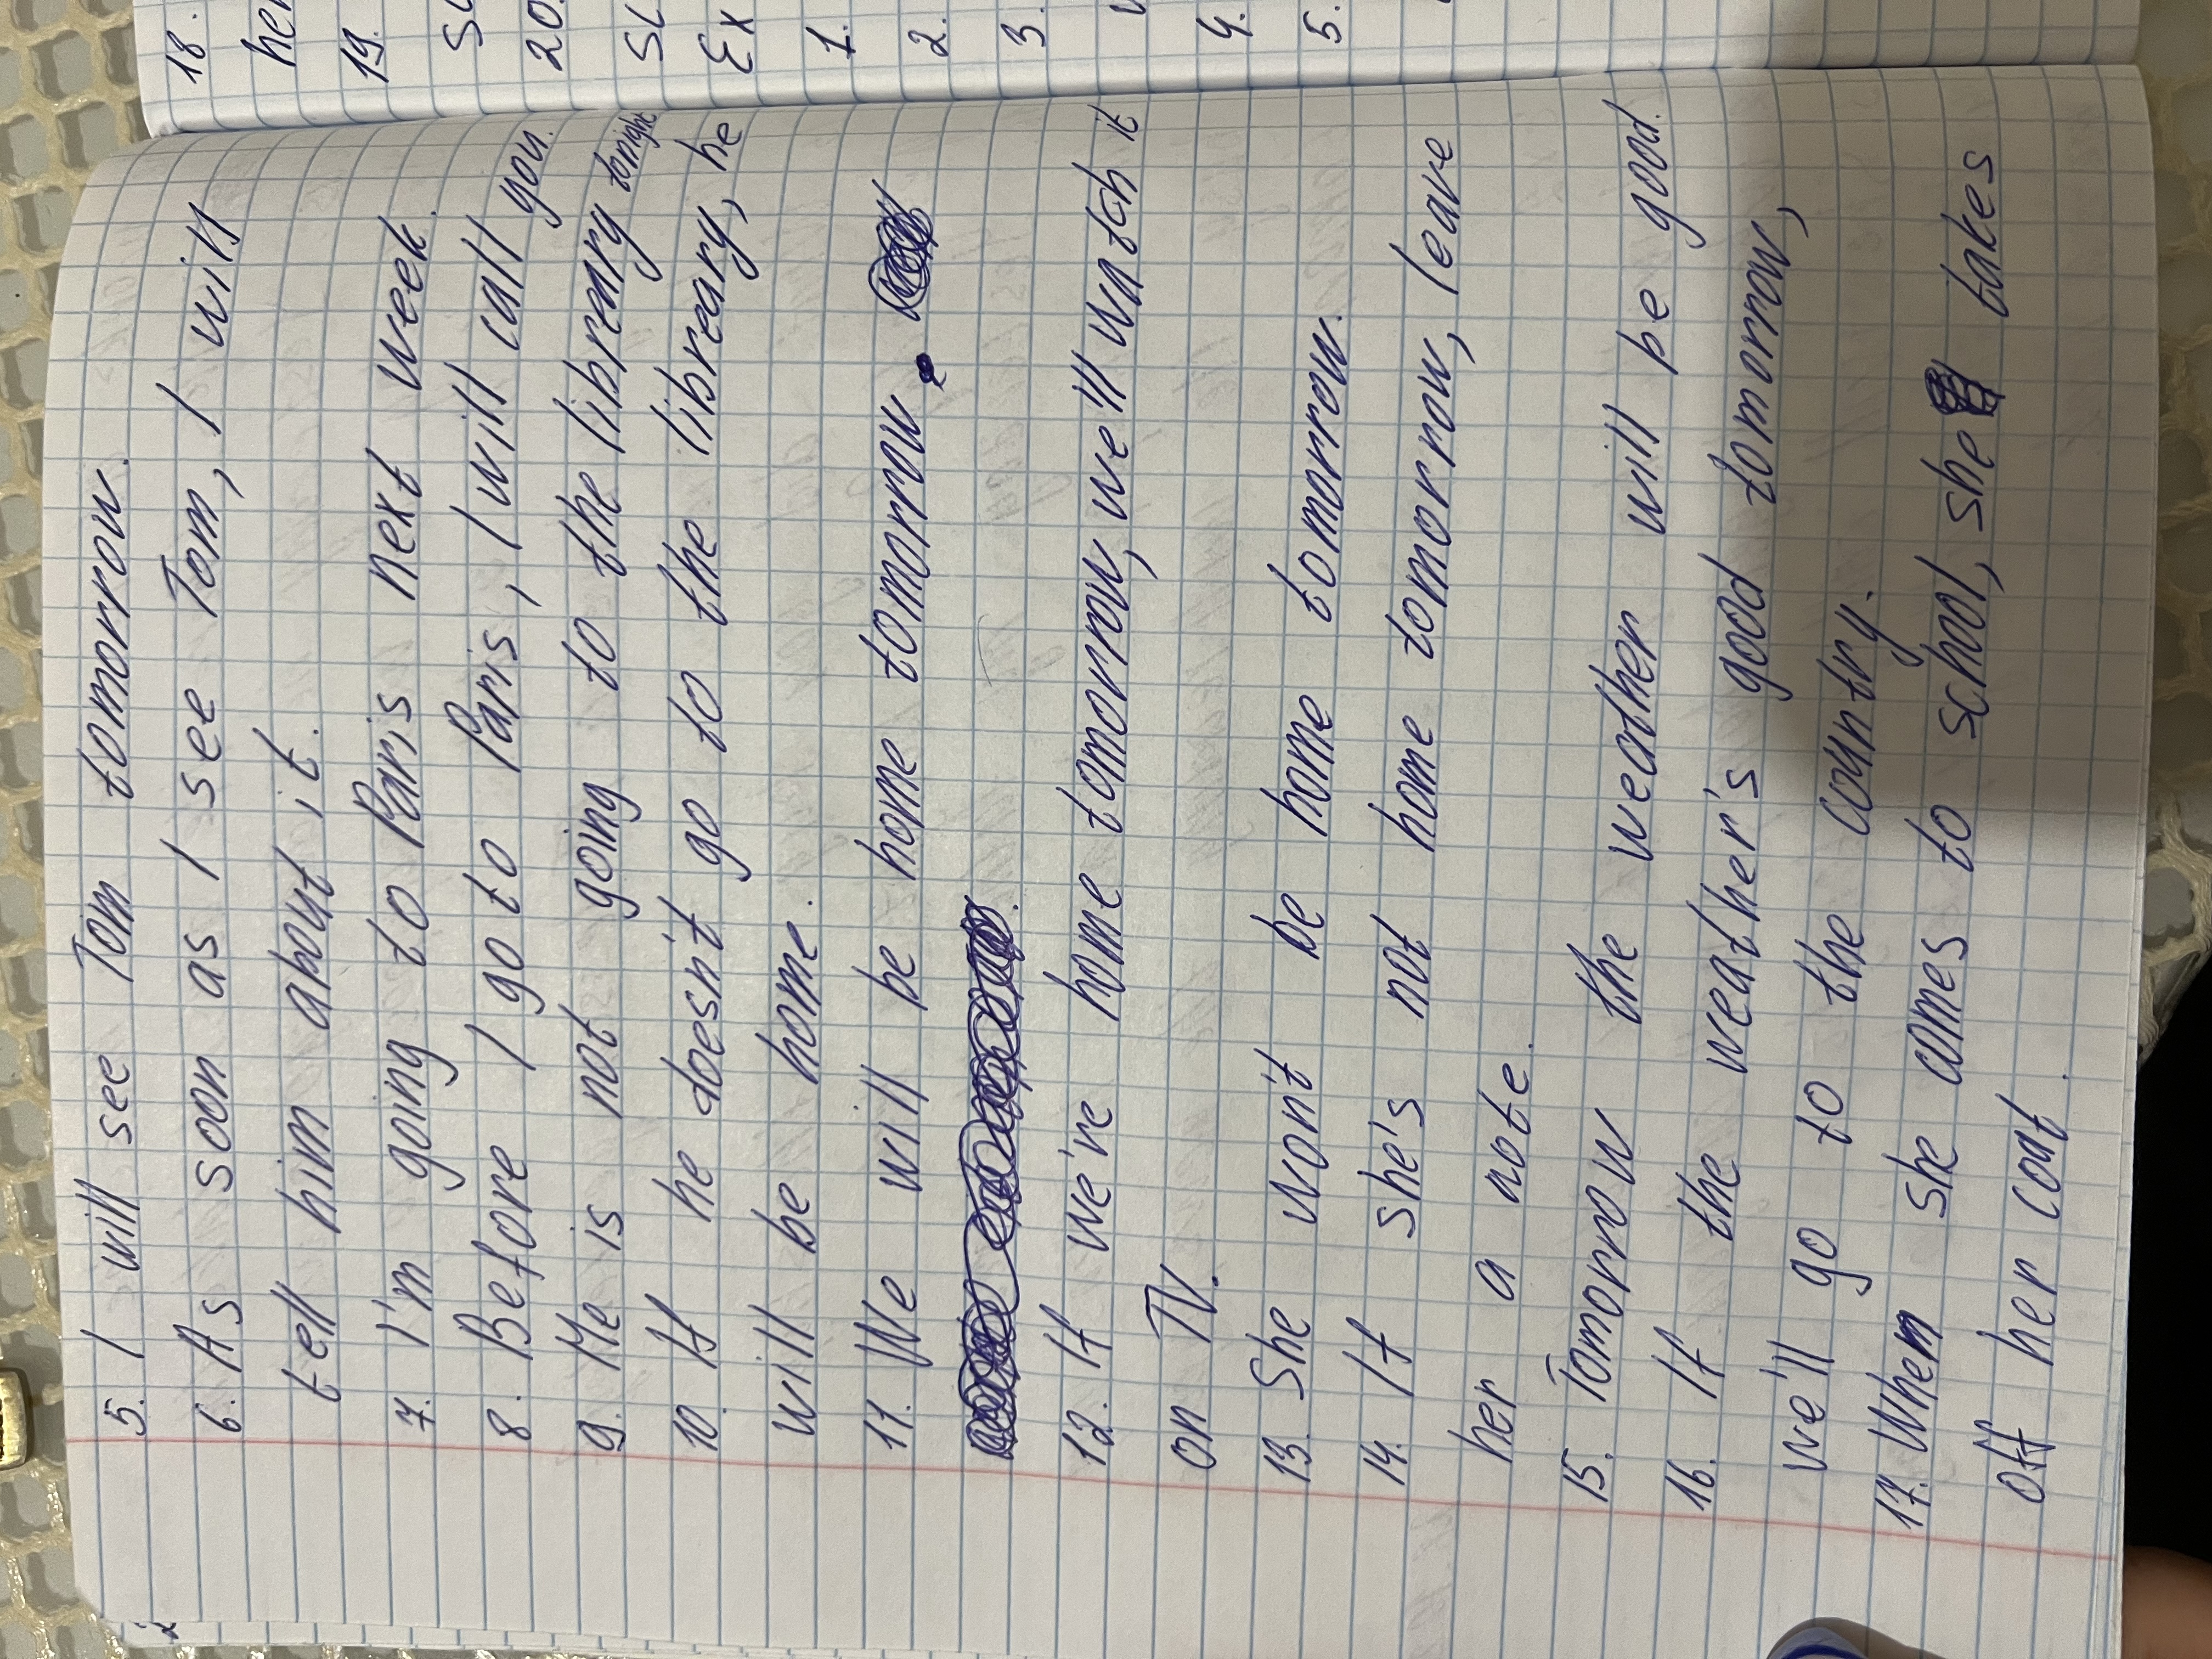 5. I will see Tom tomorrow.
6. As soon as I see Tom, I will
tell him about it.
7. I'm going to Paris next week.
8. Before I go to Paris, I will call you.
9. He is not going to the libreary tonight
10. If he doesn't go to the libreary, he
will be home.
11. We will be home tomorrow.
12. If we're home tomorrow, we'll watch it
on TV.
13. She won't be home tomorrow.
14. If she's not home tomorrow, leave
her a note.
15. Tomorrow the weather will be good.
16. If the weather's good tomorrow,
we'll go to the country.
17. When she comes to school, she takes
off her coat.
18.
her
19.
20.
Ex
1.
2.
3.
4.
5.